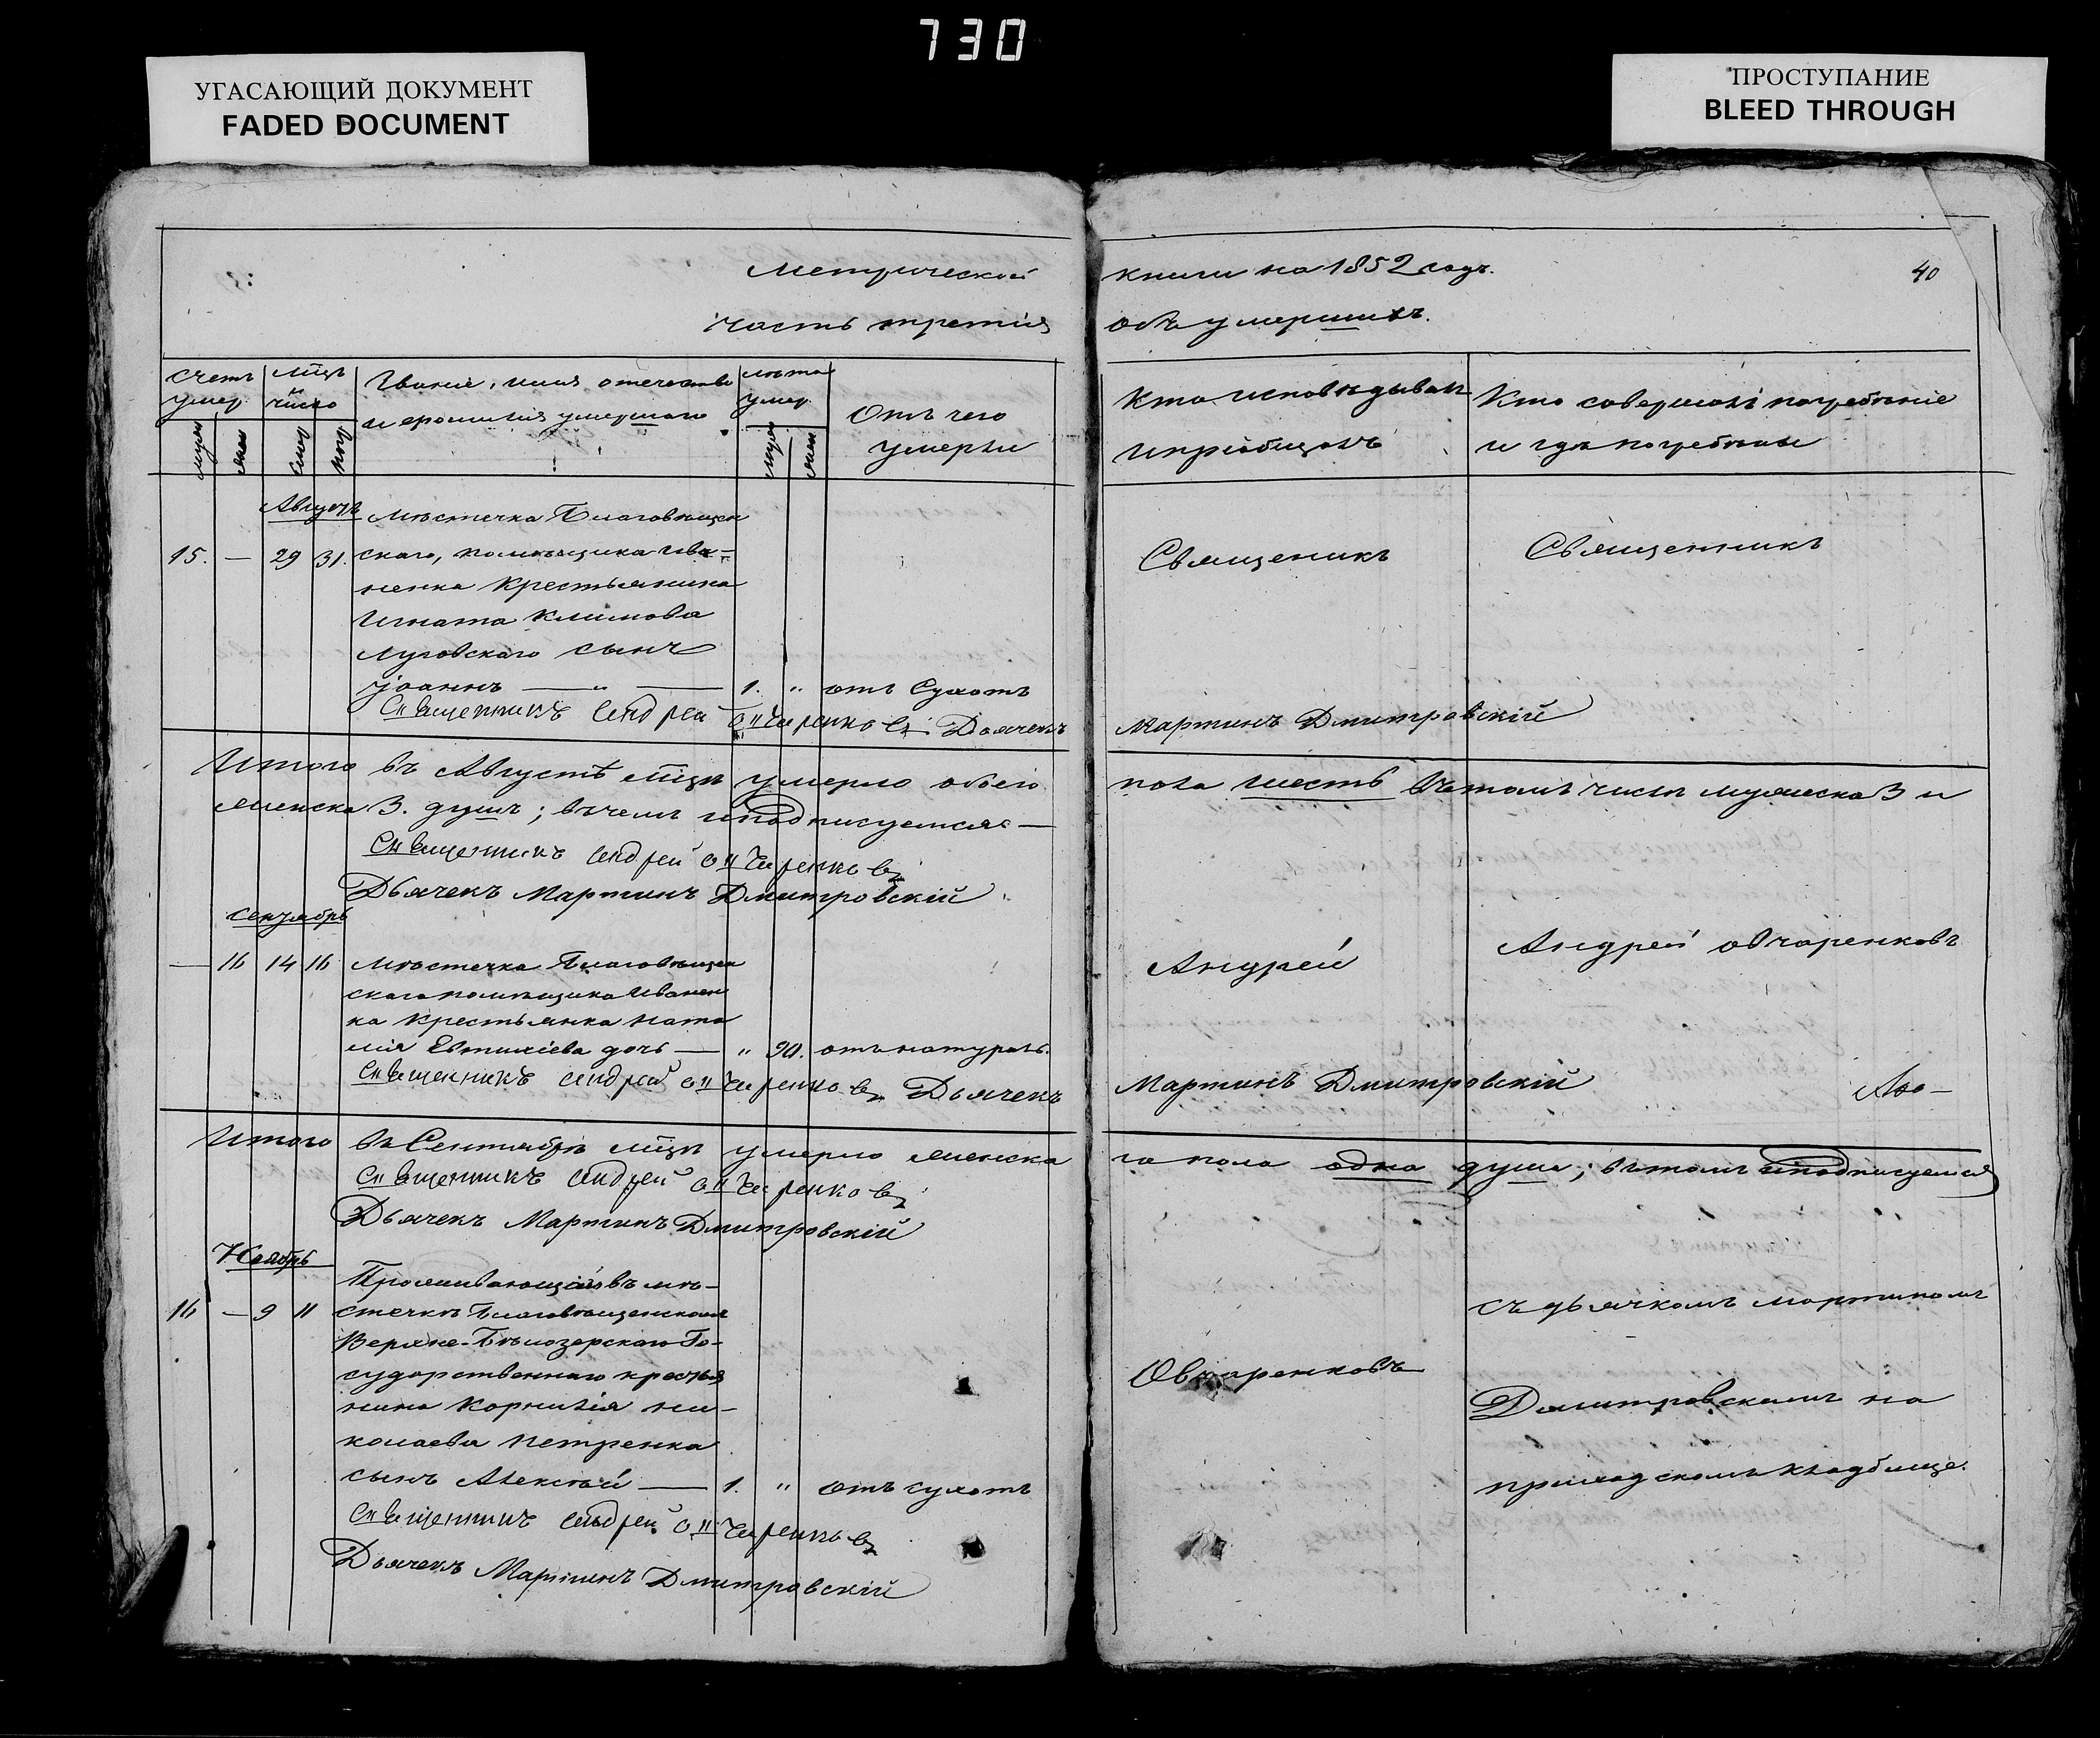 730
УГАСАЮЩИЙ ДОКУМЕНТ
FADED DOCUMENT
ПРОСТУПАНИЕ
BLEED THROUGH
Метрической
часть третія
книги на 1852 годъ.
40
объ умершихъ.
счетъ умер.
мцъ и число
Званіе, имя отечество
и фамилія умершаго
лѣта умер.
Отъ чего
умерли
Кто исповѣдывалъ
и пріобщалъ
Кто совершалъ погребеніе
и гдѣ погребены
Августъ
Мѣстечка Благовѣщен
15. — 29 31. скаго, помѣщика Ива-
ненка крестьянина
Игната Климова
Луговскаго сынъ
Іоаннъ — „ — 1. „ отъ сухотъ
Священникъ Андрей Овчаренковъ Дьячекъ
Священикъ
Священникъ
Мартинъ Дмитровскій
Итого въ Августѣ мцѣ умерло обоего
женска 3. душъ; въ чемъ и подписуемся —
Священникъ Андрей Овчаренковъ
Дьячекъ Мартинъ Дмитровскій
пола шесть въ томъ числѣ мужеска 3 и
Сентябрь
— 16 14 16 Мѣстечка Благовѣщен
скаго помѣщика Иванен
ка крестьянка Ната
лія Евтихіева дочь — „ 90. отъ натураль.
Священникъ Андрей Овчаренковъ Дьячекъ
Андрей
Андрей Овчаренковъ
Мартинъ Дмитровскій
Итого въ Сентябрѣ мцѣ умерло женска
Священникъ Андрей Овчаренковъ
Дьячекъ Мартинъ Дмитровскій
го пола одна душа; въ томъ и подписуемся
Ноябрь
Проживающаго въ мѣ-
16 — 9 11 стечкѣ Благовѣщенскомъ
Верхне-Бѣлозерскаго Го-
сударственнаго крестья
нина Корнилія Ни-
колаева Петренка
сынъ Алексѣй — 1. „ отъ сухотъ
Священникъ Андрей Овчаренковъ
Дьячекъ Мартинъ Дмитровскій
Овчаренковъ
съ дьячкомъ Мартиномъ
Дмитровскимъ на
приходскомъ кладбище.